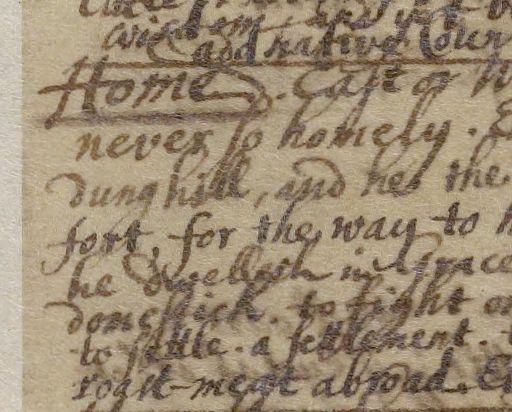 wisdom, and yet
add native Cour
Home. East or W
never so homely. E
dunghill, and he's the
fort, for the way to h
he dwelleth in Grace
domestick. to fight
to settle. a settlement.
roast-meat abroad.